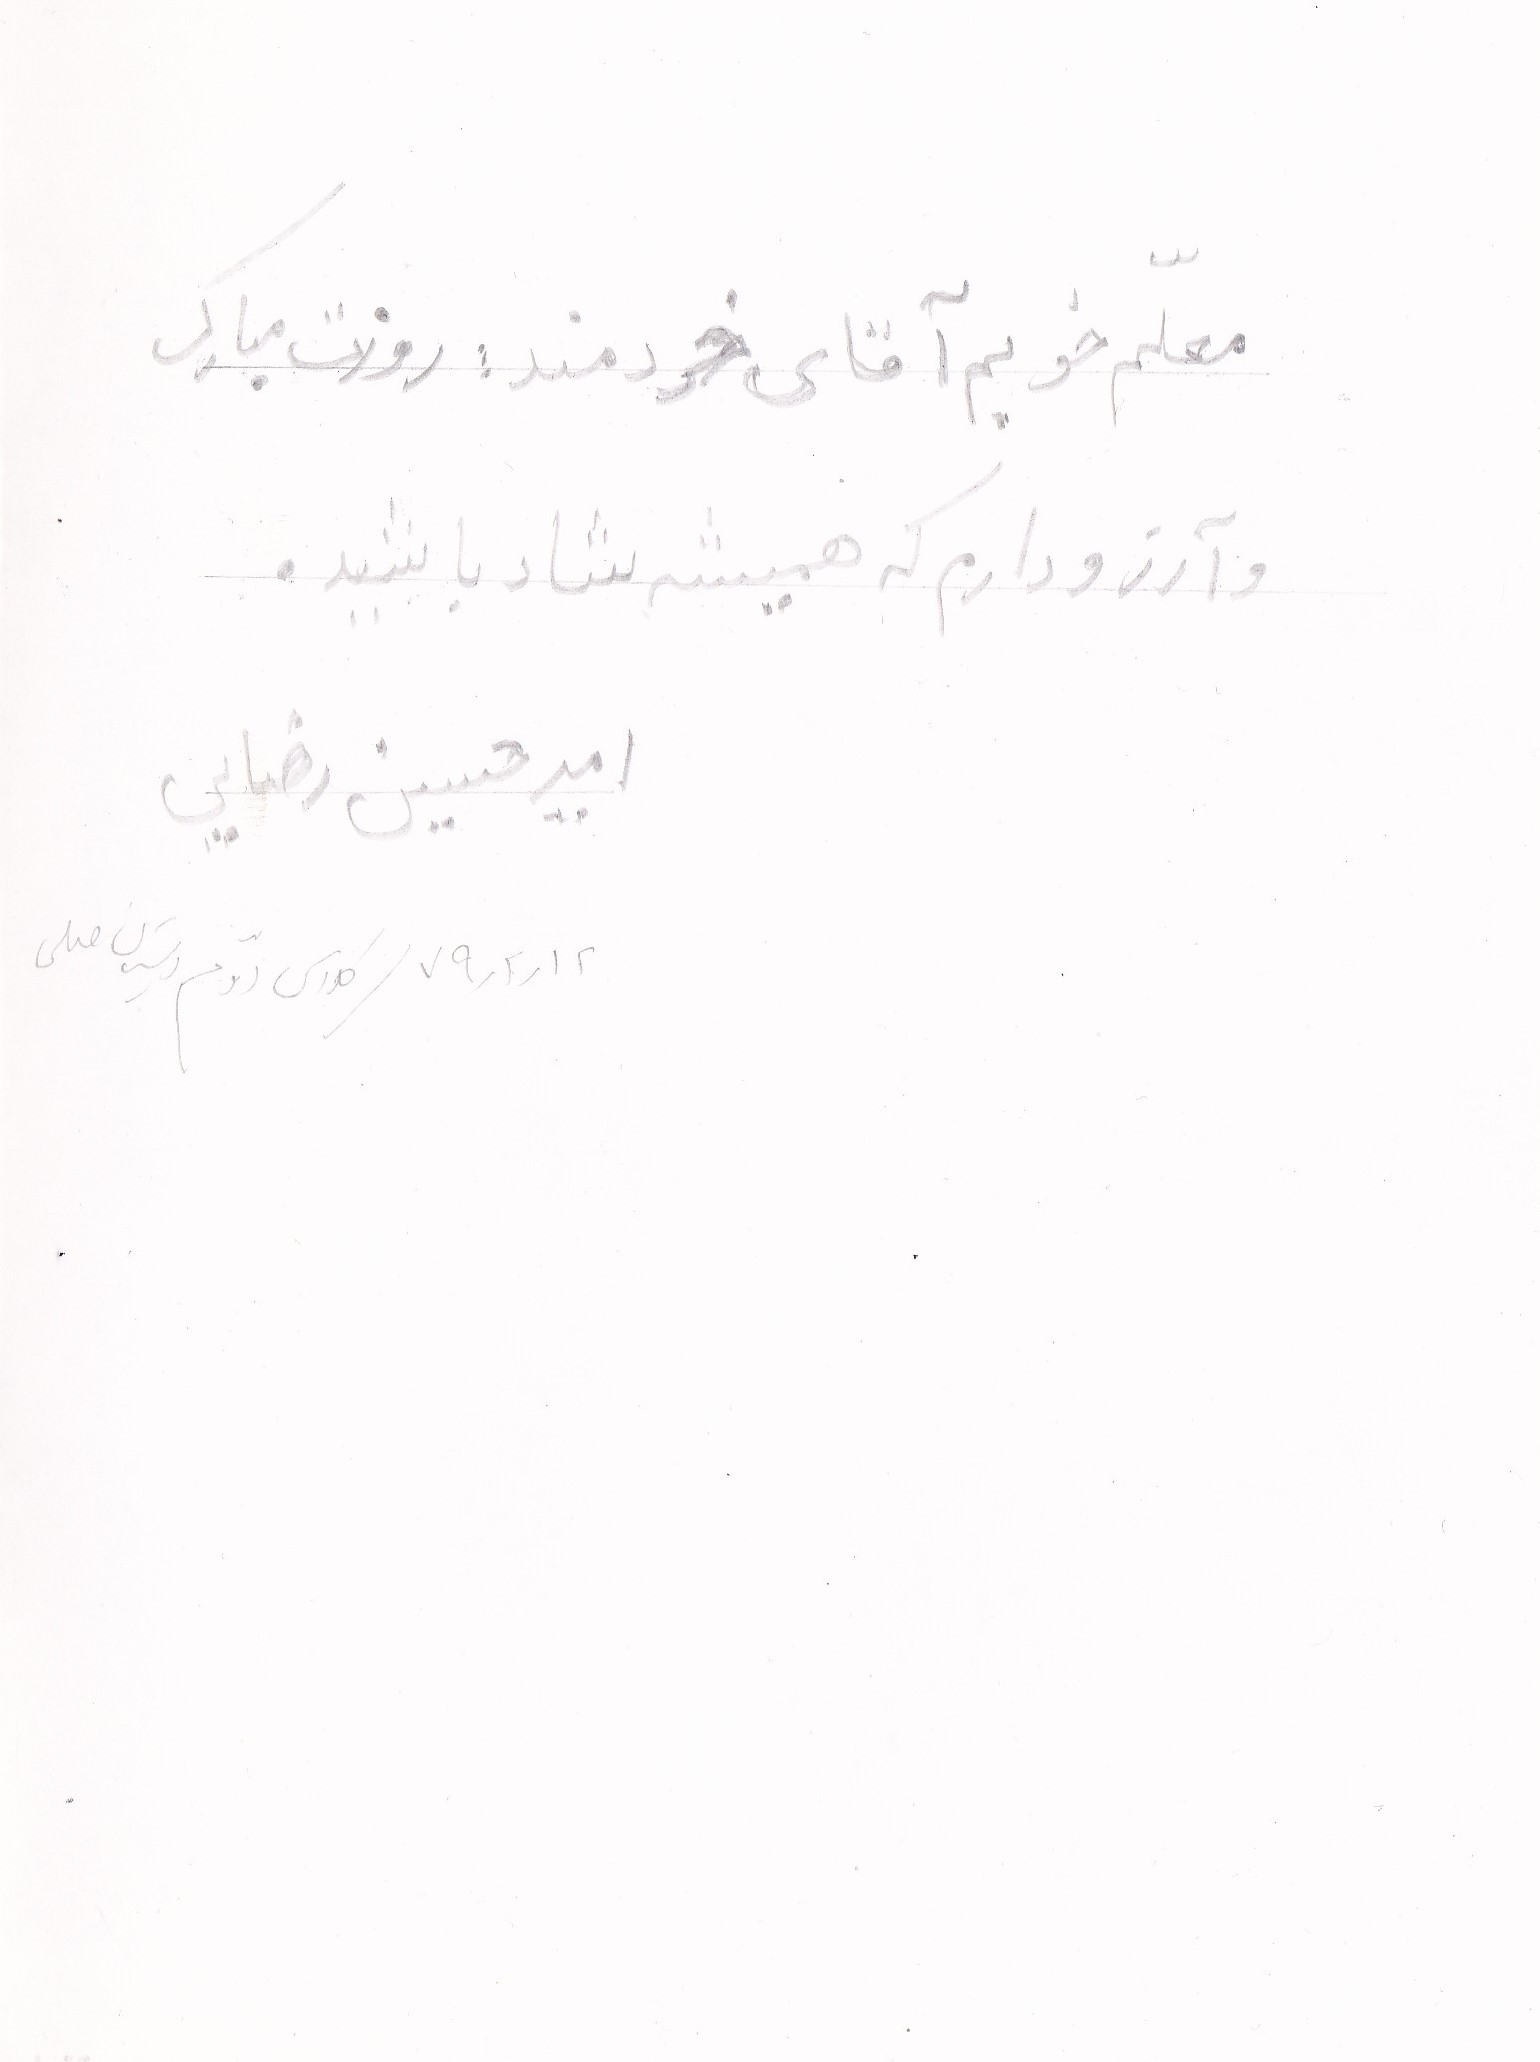 معلّم خوبم آقای خردمند: روزت مبارک
و آرزو دارم که همیشه شاد باشید.
امیرحسین رضایی
۷۹٫۲٫۱۲ / کلاس دوّم دبستان